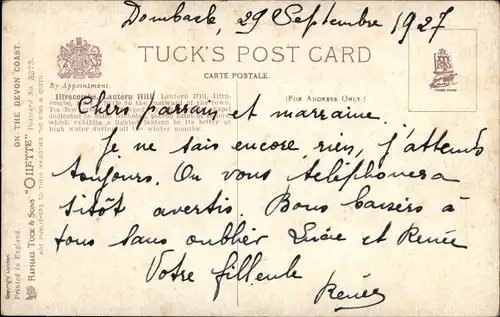 Dombach, 29 Septembre 1927
TUCK'S POST CARD
CARTE POSTALE.
By Appointment.
(FOR ADDRESS ONLY.)
Ilfracombe, Lantern Hill. Lantern Hill, Ilfra-
high water during all the winter months.
Chers parrain et marraine.
Je ne sais encore rien, j'attends
toujours. On vous téléphonera
sitôt avertis. Bons baisers à
tous sans oublier Lucie et Renée
Votre filleule
Renée
ON THE DEVON COAST.
RAPHAEL TUCK & SONS' "OILETTE" Postcard No. 3273.
ART PUBLISHERS TO THEIR MAJESTIES THE KING & QUEEN.
Printed in England.
Copyright London